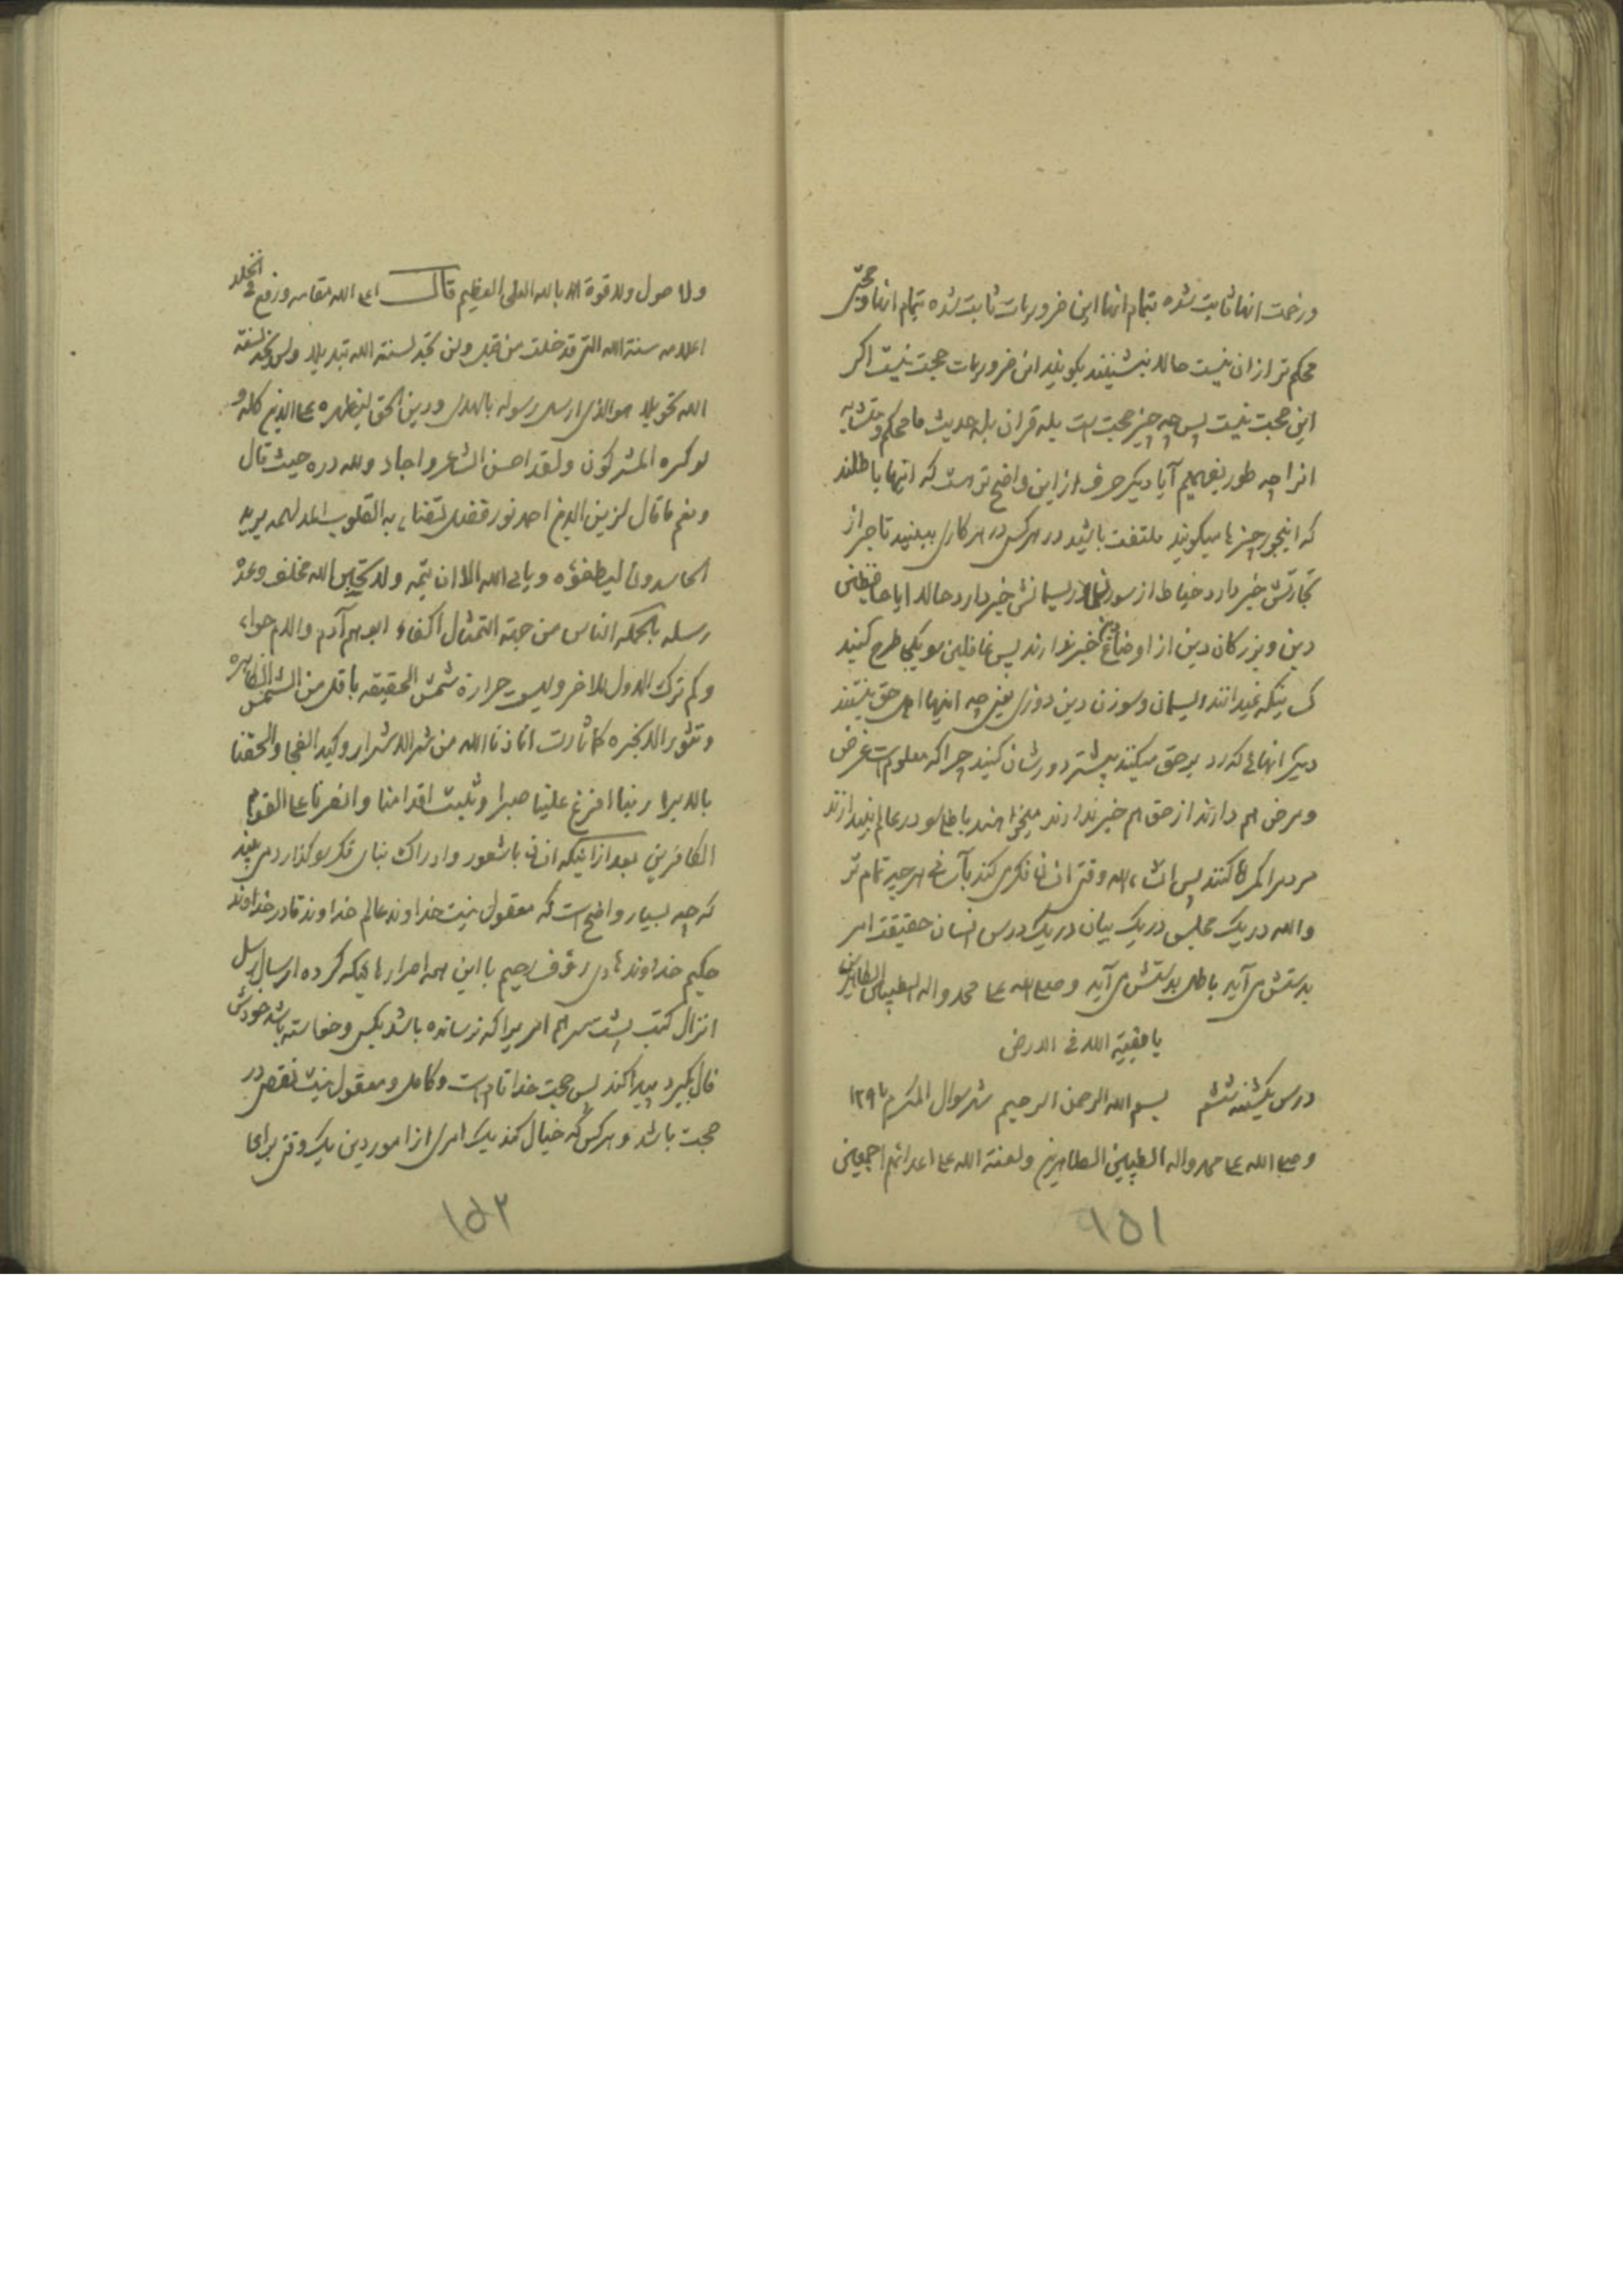 ورخصت انها ثابت شده بتمام انها این ضروریات ثابت شده بتمام انها و حجتی
محکم تر ازان نیست حالا بنشینند بگویند این ضروریات حجت نیست اگر
این حجت نیست پس چه چیز حجت است بله قران بله حدیث ما محکم و متشابه
انرا چه طور بفهمیم آیا دیگر حرف از این واضح تر هست که اینها باطلند
که اینجور چیزها میگویند ملتفت باشید در هر کس در هر کاری ببینید تاجر از
تجارتش خبر دارد خیاط از سوزنش از ریسمانش خبر دارد حالا ایا حافظین
دین و بزرگان دین از اوضاع دین خبر ندارند پس غافلین بویکی طرح کنید
کسانیکه نمیدانند ریسمان و سوزن دین دوزی یعنی چه اینها اهل حق نیستند
دیگر انهائی که رد بر حق میکنند بیشتر دورشان کنید چرا که معلوم است غرض
و مرض هم دارند از حق هم خبر ندارند میخواهند باطل را در عالم بیندازند
مردم را گمراه کنند پس ان شاء الله وقتی انسان فکری کند بآسانی هر چه تمام تر
والله در یک مجلس در یک بیان در یک درس انسان حقیقت امر
بدستش می آید باطل بدستش می آید و صلی الله علی محمد واله الطیبین الطاهرین
یا بقیة الله فی الارض
درس یکشنبه ششم بسم الله الرحمن الرحیم شهر شوال المکرم ۱۲۹۶
و صلی الله علی محمد واله الطیبین الطاهرین ولعنة الله علی اعدائهم اجمعین
۱۵۱
ولا حول ولا قوة الا بالله العلی العظیم قال اعلی الله مقامه و رفع فی الخلد
اعلامه سنة الله التی قد خلت من قبل ولن تجد لسنة الله تبدیلا ولن تجد لسنة
الله تحویلا هو الذی ارسل رسوله بالهدی و دین الحق لیظهره علی الدین کله و
لو کره المشرکون ولقد احسن الشاعر واجاد ولله دره حیث قال
ونعم ما قال لزین الدین احمد نور فضل تضئ به القلوب المدلهمه یرید
الحاسدون لیطفئوه ویابی الله الا ان یتمه ولا تحسبن الله مخلف وعده
رسله بالجمله الناس من جهة التمثال اکفاء ابوهم آدم والام حواء
وکم ترک الاول للاخر ولیس حرارة شمس الحقیقه باقل من الشمس الظاهره
وتثویر الابخره کلما ثارت اعاذنا الله من شر الاشرار وکید الفجار والحقنا
بالابرار ربنا افرغ علینا صبرا وثبت اقدامنا وانصرنا علی القوم
الکافرین بعد از اینکه انسان باشعور و ادراک بنای فکر را گذارد می بیند
که چه بسیار واضح است که معقول نیست خداوند عالم خداوند قادر خداوند
حکیم خداوند هادی رؤف رحیم با این همه اصرارهائیکه کرده ارسال رسل
انزال کتب پشت سر هم امریرا که نرسانده باشد بکسی و خواسته باشد خودش
فال بگیرد پیدا کند پس حجت خدا تام است و کامل و معقول نیست نقص در
حجت باشد و هر کس که خیال کند یک امری از امور دین یک وقتی برای
۱۵۲